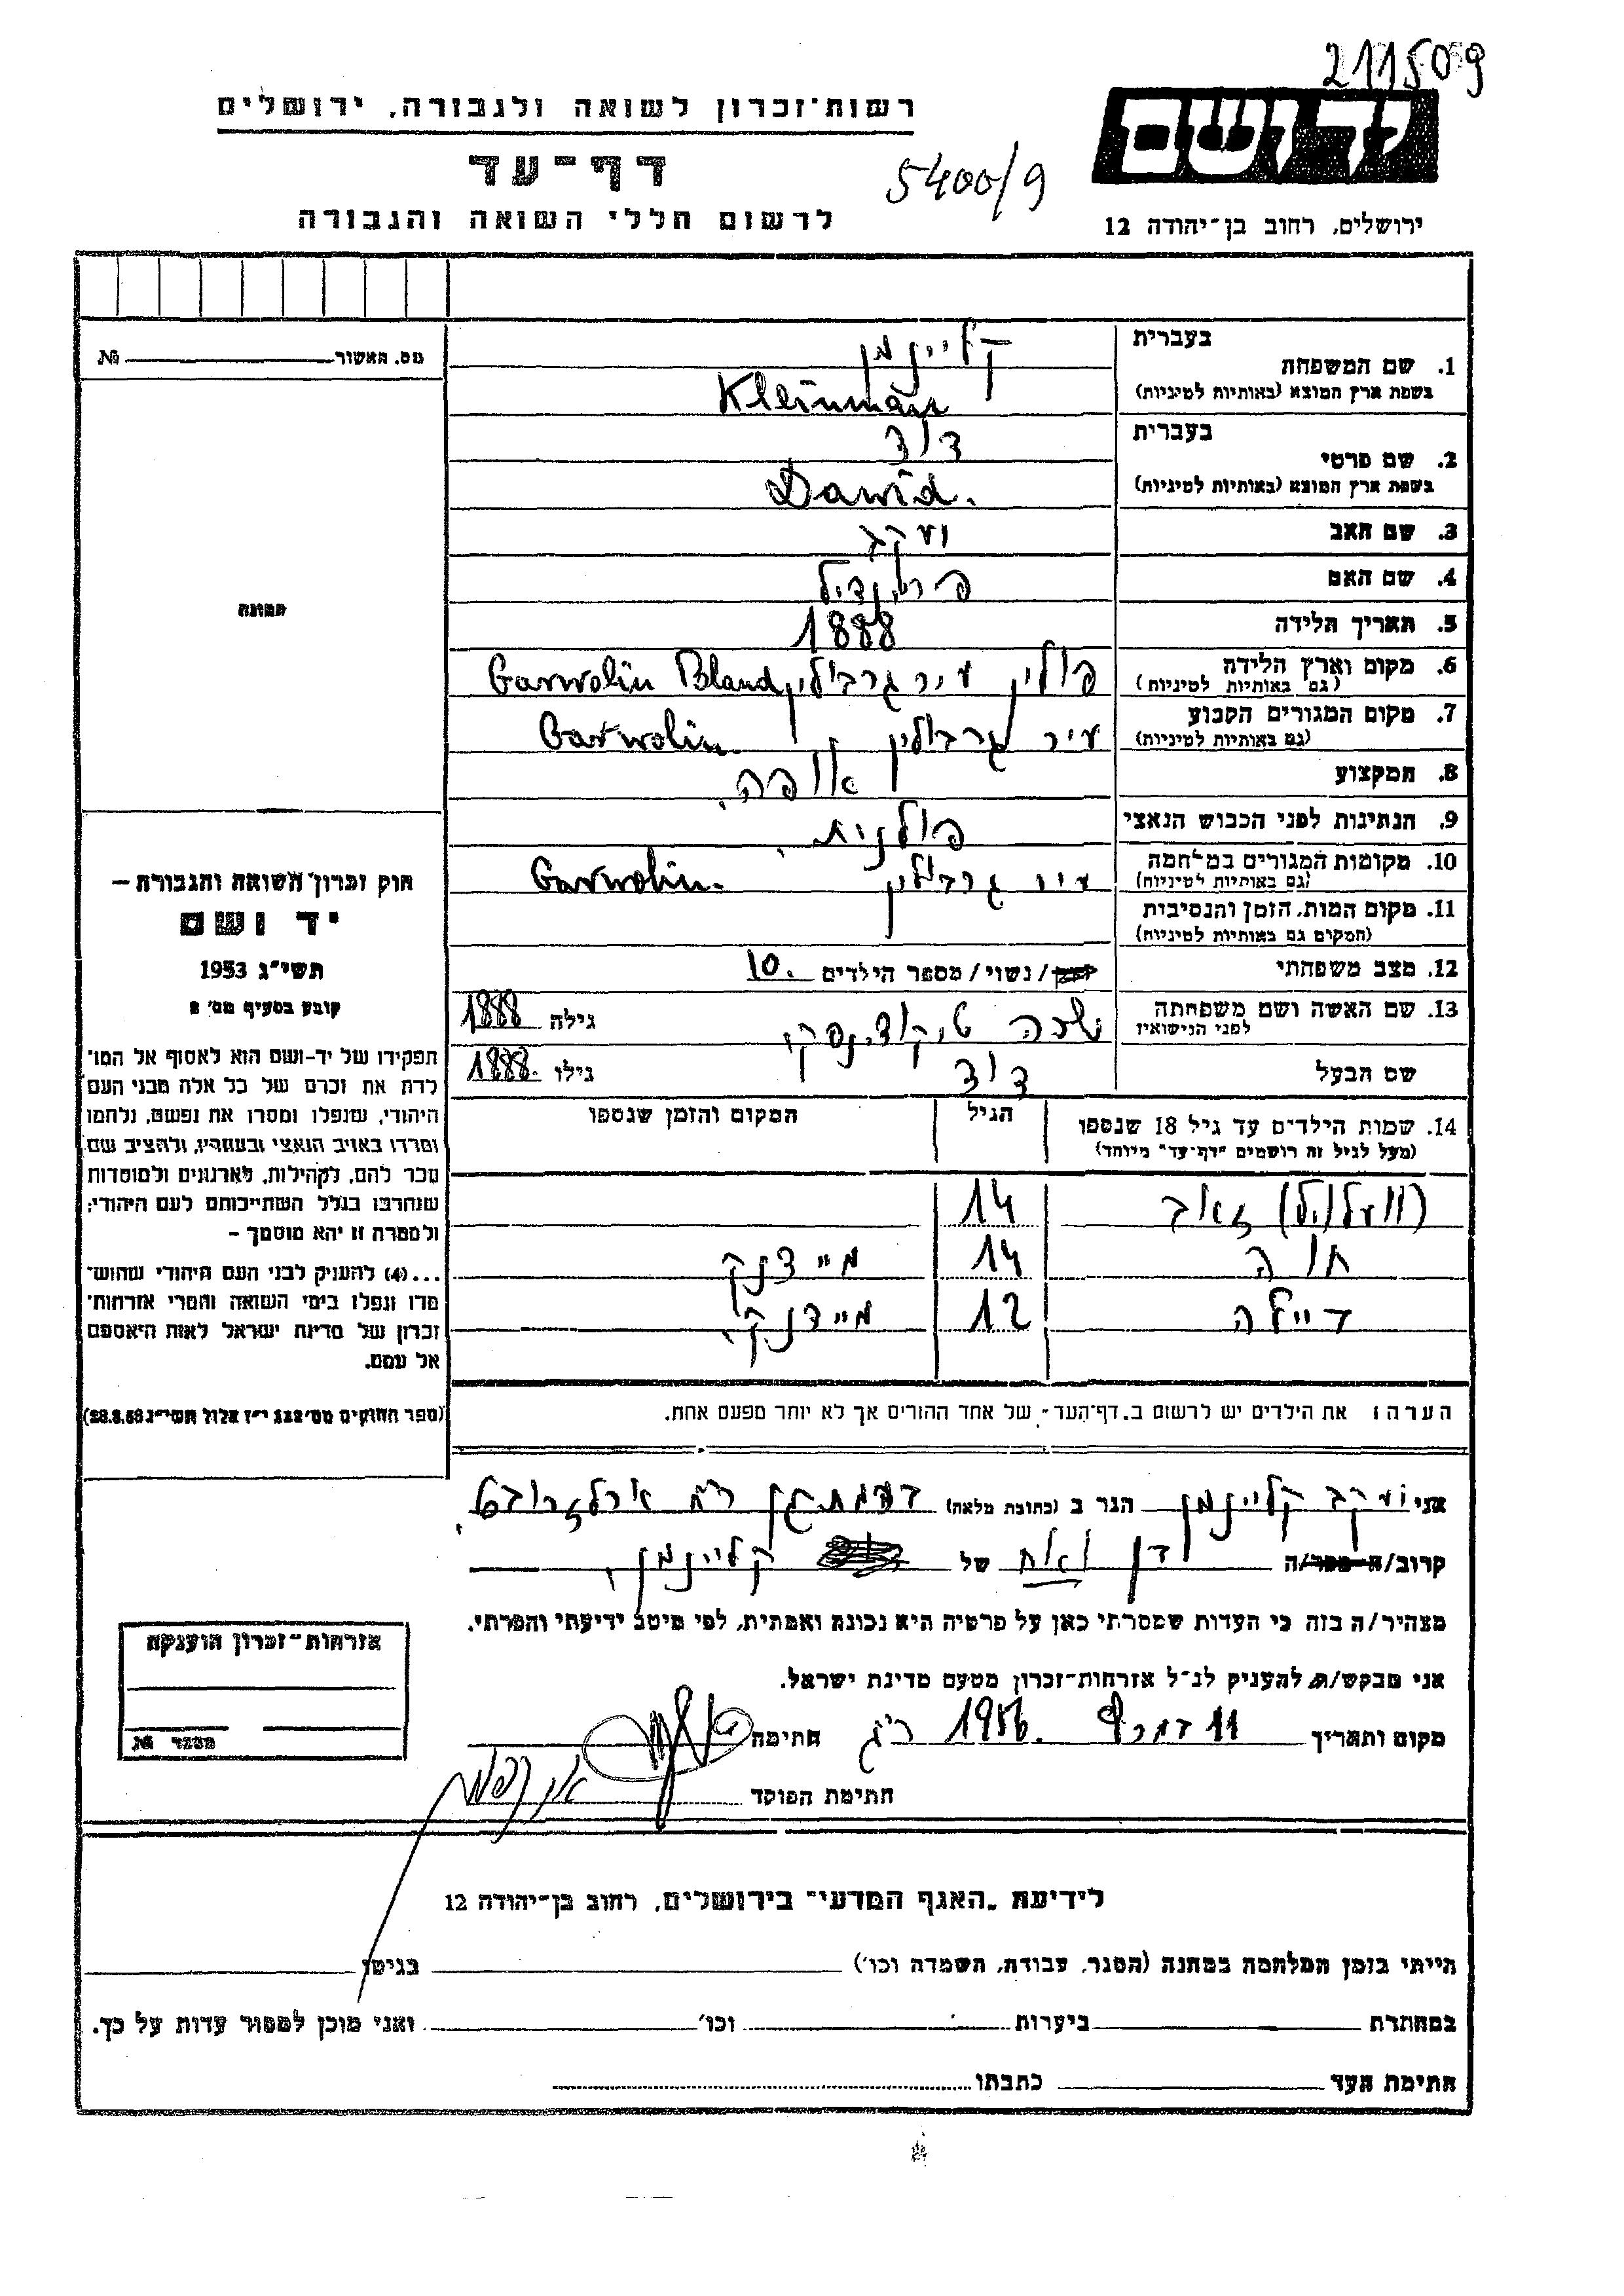 211509
יד ושם
רשות־זכרון לשואה ולגבורה, ירושלים
דף־עד
5400/9
לרשום חללי השואה והגבורה
ירושלים, רחוב בן־יהודה 12
מס. האשור № 
בעברית קליינמן
1. שם המשפחה
בשפת ארץ המוצא (באותיות לטיניות) Kleinman
בעברית דוד
2. שם פרטי
בשפת ארץ המוצא (באותיות לטיניות) Dawid.
3. שם האב יעקב
4. שם האם
5. תאריך הלידה 1888
6. מקום וארץ הלידה פולין עיר גרבולין Garwolin Poland
(גם באותיות לטיניות)
7. מקום המגורים הקבוע עיר גרבולין Garwolin.
(גם באותיות לטיניות)
8. המקצוע אופה.
9. הנתינות לפני הכבוש הנאצי פולנית.
10. מקומות המגורים במלחמה עיר גרבולין Garwolin.
(גם באותיות לטיניות)
11. מקום המות, הזמן והנסיבות
(המקום גם באותיות לטיניות)
12. מצב משפחתי /נשוי/ מספר הילדים 10.
13. שם האשה ושם משפחתה גילה 1888
לפני הנישואין
שם הבעל דוד גילו 1888.
14. שמות הילדים עד גיל 18 שנספו הגיל המקום והזמן שנספו
(מעל לגיל זה רושמים "דף־עד" מיוחד)
זאב 14
חוה 14 מיידנק
דיילה 12 מיידנק.
הערה: את הילדים יש לרשום ב„דף־העד" של אחד ההורים אך לא יותר מפעם אחת.
תמונה
חוק זכרון השואה והגבורה –
יד ושם
תשי"ג 1953
קובע בסעיף מס' 2
תפקידו של יד-ושם הוא לאסוף אל המו־
לדת את זכרם של כל אלה מבני העם
היהודי, שנפלו ומסרו את נפשם, נלחמו
ומרדו באויב הנאצי ובעוזריו, ולהציב שם
וזכר להם, לקהילות, לארגונים ולמוסדות
שנחרבו בגלל השתייכותם לעם היהודי;
ולמטרה זו יהא מוסמך –
...(4) להעניק לבני העם היהודי שהוש־
מדו ונפלו בימי השואה והמרי אזרחות־
זכרון של מדינת ישראל לאות היאספם
אל עמם.
(ספר החוקים מס' 132 י"ז אלול תשי"ג 28.8.53)
אני יעקב קליינמן הגר ב (כתובת מלאה)
קרוב/ה של קליינמן.
מצהיר/ה בזה כי העדות שמסרתי כאן על פרטיה היא נכונה ואמתית, לפי מיטב ידיעתי והכרתי.
אני מבקש/ת להעניק לנ"ל אזרחות־זכרון מטעם מדינת ישראל.
מקום ותאריך 11 1956. ר"ג חתימה
חתימת הפוקד
אזרחות־זכרון הוענקה
מספר №
לידיעת „האגף המדעי" בירושלים, רחוב בן־יהודה 12
הייתי בזמן המלחמה במחנה (הסגר, עבודה, השמדה וכו') בגיטו
במחתרת ביערות וכו' ואני מוכן למסור עדות על כך.
חתימת העד כתבתו